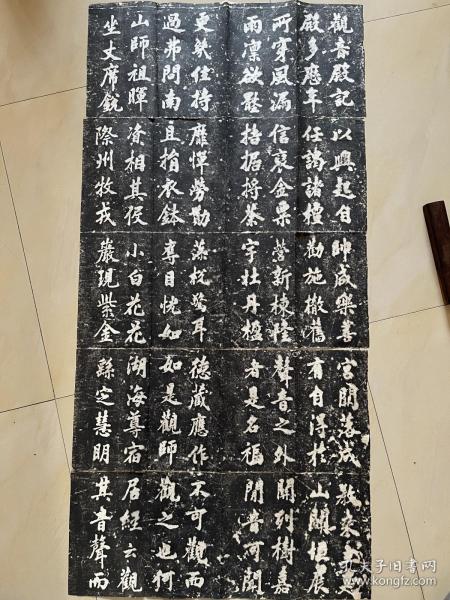 觀音殿記
殿多應年
所穿風漏
雨凛欲壓
更幾住持
過弗問南
山師祖暉
坐丈席銳
以興起自
任謁諸檀
信裒金粟
拮据捋荼
靡憚勞勩
且捐衣鉢
資相其役
際州牧戎
帥咸樂善
勸施撤舊
營新棟隆
宇壮丹楹
藻梲驚耳
専目恍如
小白花花
嚴現紫金
容閴落成
有自浮於
聲音之外
者是名福
德藏應作
如是觀師
湖海尊宿
繇定慧明
教來
山關坦展
開列樹嘉
聞音可聞
不可觀而
觀之也何
居經云觀
其音聲而
孔夫子旧书网